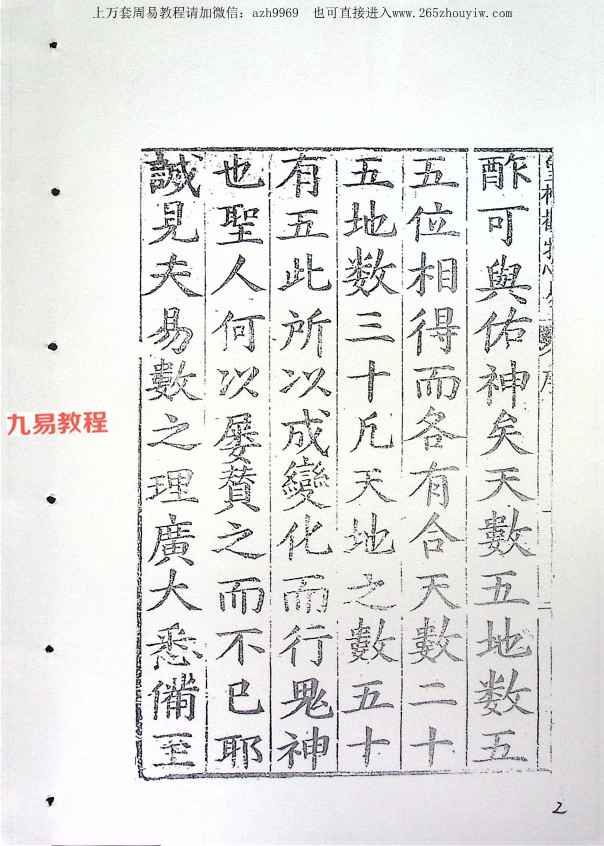 上万套周易教程请加微信：azh9969　也可直接进入www.265zhouyiw.com
酢可與佑神矣天數五地數五
五位相得而各有合天數二十
五地數三十凡天地之數五十
有五此所以成變化而行鬼神
也聖人何以屢賛之而不已耶
誠見夫易數之理廣大悉備至
九易教程
2